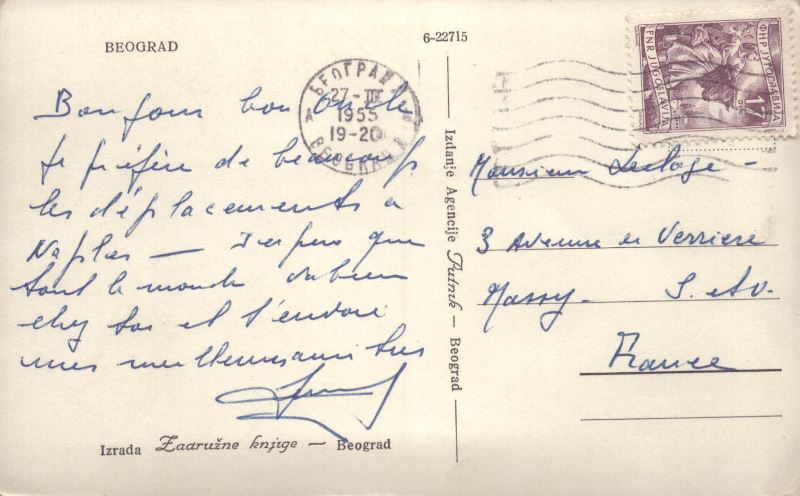 BEOGRAD
6-22715
БЕОГРАД
27-III
1955
19-20
BEOGRAD
ФНР ЈУГОСЛАВИЈА
FNR JUGOSLAVIJA
17
Bonjour bon Oncle
Je préfère de beaucoup
les déplacements a
Naples — J'espère que
tout le monde va bien
chez toi et t'envoie
mes meilleures amitiés
Izrada Zadružne knjige — Beograd
Izdanje Agencije Putnik — Beograd
Monsieur
3 Avenue de Verriere
Massy. S. et O.
France